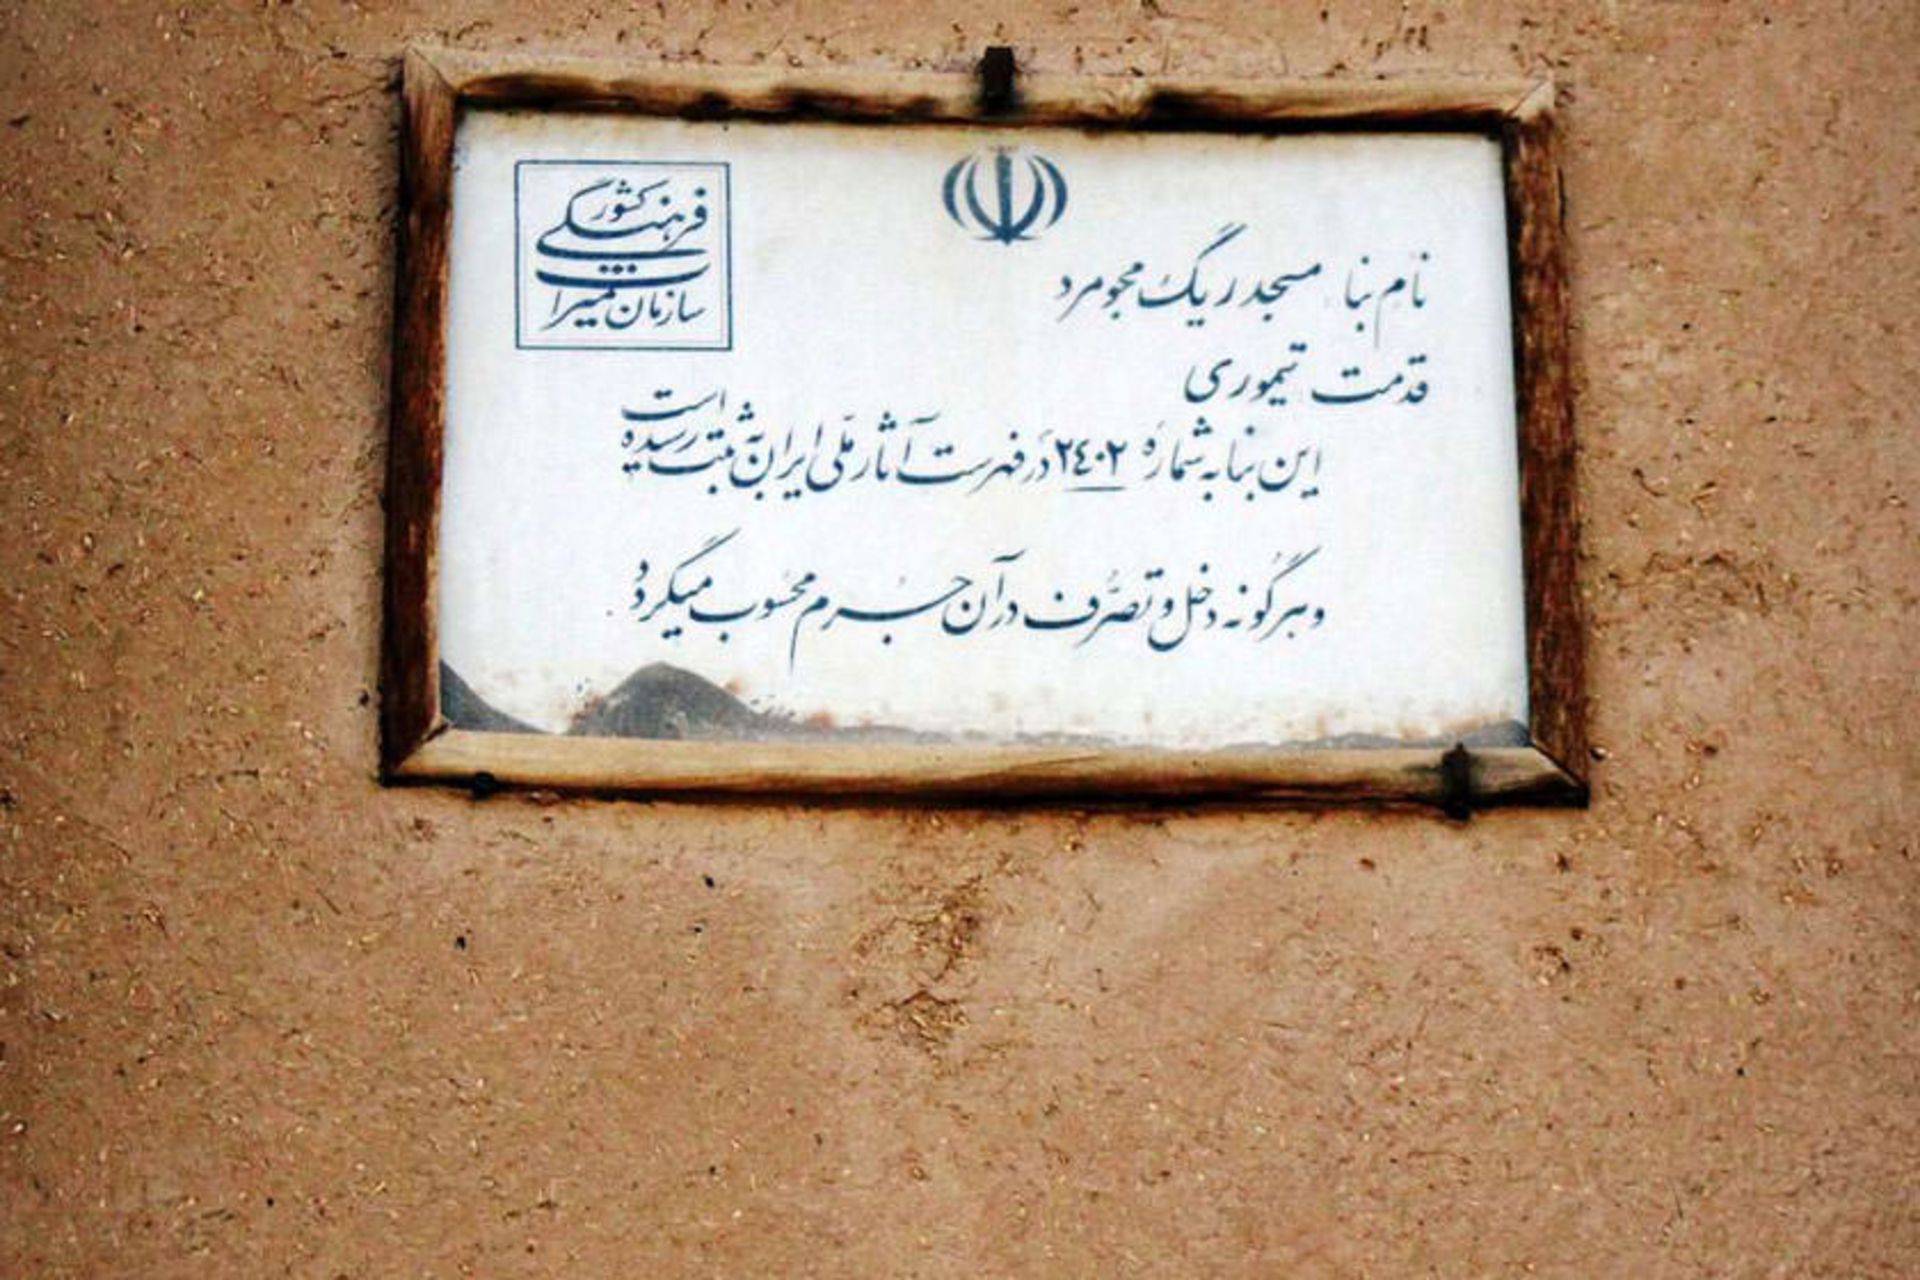 سازمان میراث
فرهنگی
کشور
نام بنا مسجد ریگ مجومرد
قدمت تیموری
این بنا به شماره ۲٤۰۲ در فهرست آثار ملّی ایران به ثبت رسیده است
و هر گونه دخل و تصرّف در آن جرم محسوب میگردد